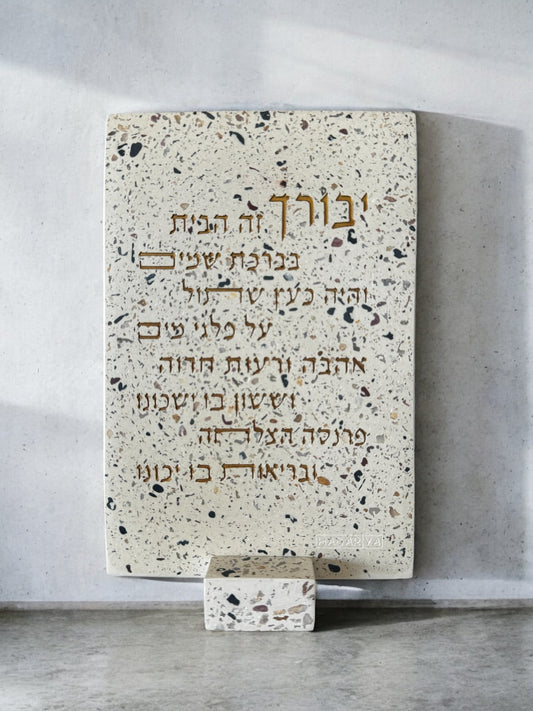 יבורך זה הבית
בברכת שמים
והיה כעץ שתול
על פלגי מים
אהבה ורעות חדוה
וששון בו ישכונו
פרנסה הצלחה
ובריאות בו יכונו